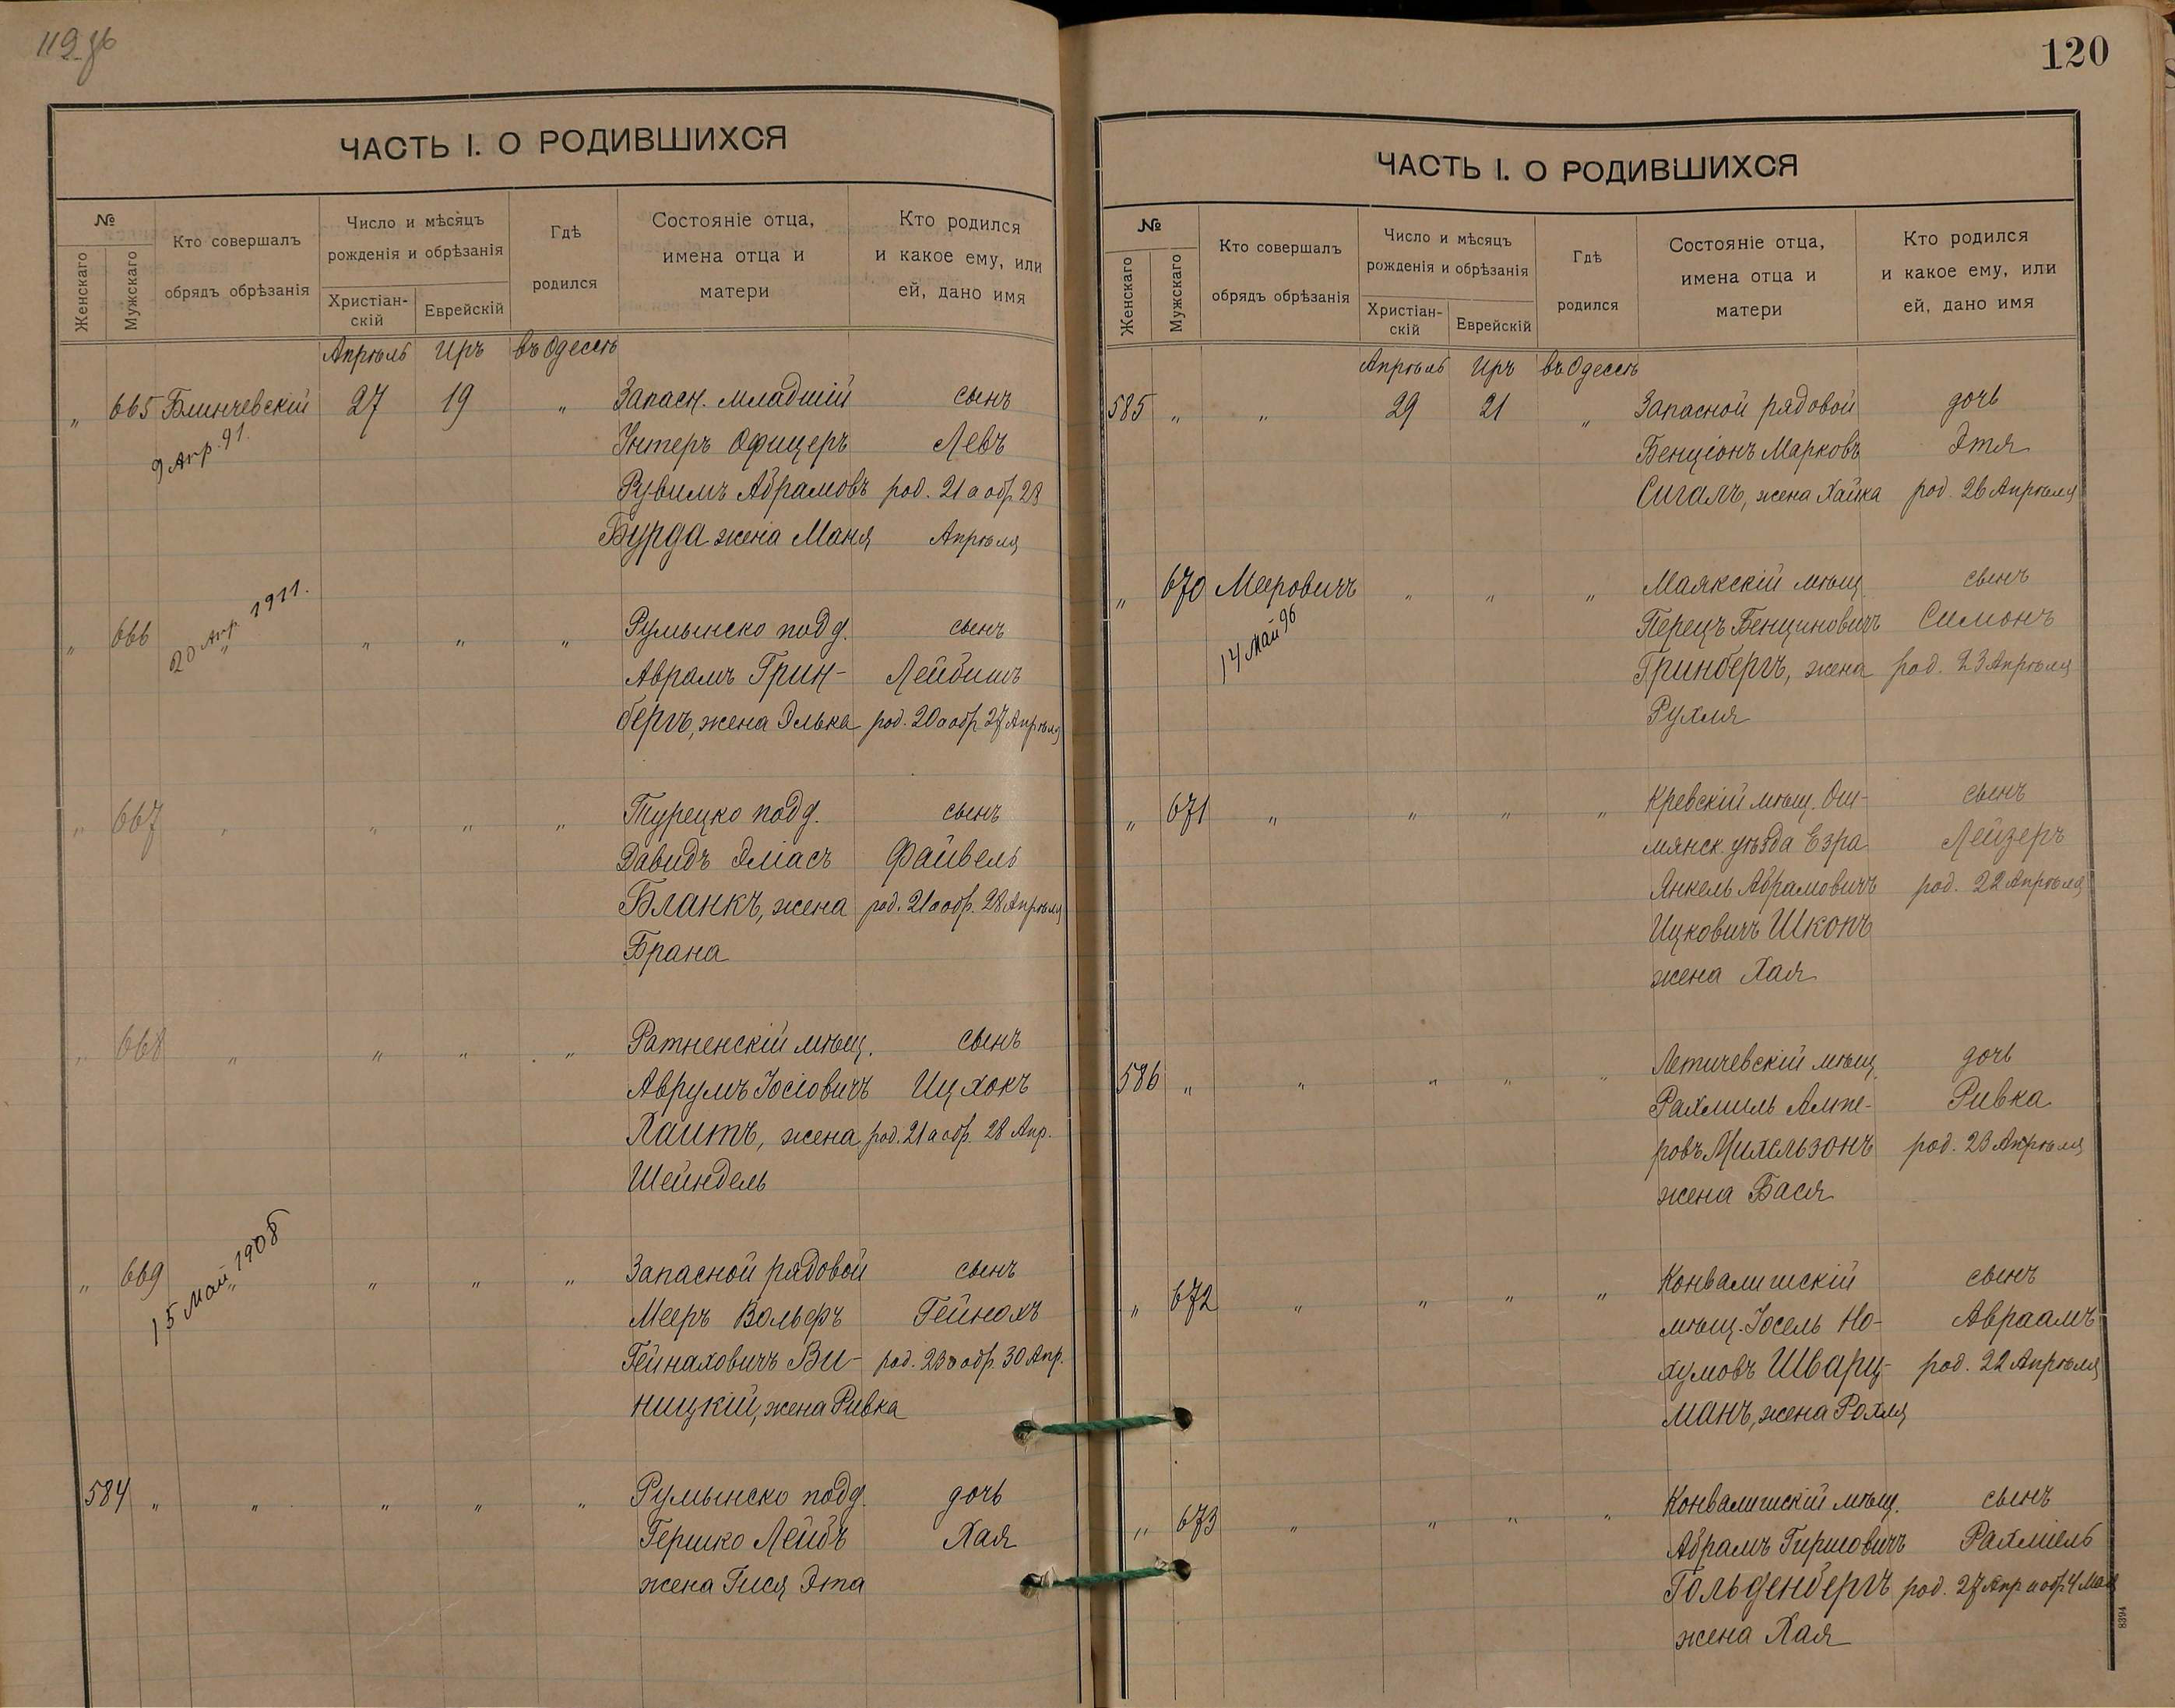 119 об
ЧАСТЬ I. О РОДИВШИХСЯ
№
Женскаго
Мужскаго
Кто совершалъ
обрядъ обрѣзанія
Число и мѣсяцъ
рожденія и обрѣзанія
Христіан-
скій
Еврейскій
Гдѣ
родился
Состояніе отца,
имена отца и
матери
Кто родился
и какое ему, или
ей, дано имя
Апрѣль Иръ въ Одессѣ
„ 665 Блинчевскій 27 19 „ Запасн. младшій сынъ
9 Апр. 91. Унтеръ Офицеръ Левъ
Рувимъ Абрамовъ род. 21 а обр 28
Бурда жена Маня Апрѣля
„ 666 „ „ „ „ Румынско подд. сынъ
20 Апр. 1911. Аврамъ Грин- Лейбишъ
бергъ, жена Элька род. 20 а обр 27 Апрѣля
„ 667 „ „ „ „ Турецко подд. сынъ
Давидъ Эліасъ Файвель
Бланкъ, жена род. 21 а обр. 28 Апрѣля
Брана
„ 668 „ „ „ „ Ратненскій мѣщ. сынъ
Аврумъ Іосіовичъ Ицхокъ
Хаитъ, жена род. 21 а обр. 28 Апр.
Шейндель
„ 669 „ „ „ „ Запасной рядовой сынъ
15 Май 1908 Мееръ Вольфъ Гейнохъ
Гейнаховичъ Ви- род. 23 а обр. 30 Апр.
ницкій, жена Ривка
584 „ „ „ „ „ Румынско подд. дочь
Гершко Лейбъ Хая
жена Гися Эта
120
ЧАСТЬ I. О РОДИВШИХСЯ
№
Женскаго
Мужскаго
Кто совершалъ
обрядъ обрѣзанія
Число и мѣсяцъ
рожденія и обрѣзанія
Христіан-
скій
Еврейскій
Гдѣ
родился
Состояніе отца,
имена отца и
матери
Кто родился
и какое ему, или
ей, дано имя
Апрѣль Иръ въ Одессѣ
585 „ „ 29 21 „ Запасной рядовой дочь
Бенціонъ Марковъ Этя
Сигалъ, жена Хайка род. 26 Апрѣля
„ 670 Мееровичъ „ „ „ Маякскій мѣщ. сынъ
14 Май 96 Перецъ Бенциновичъ Симонъ
Гринбергъ, жена род. 23 Апрѣля
Рухля
„ 671 „ „ „ „ Кревскій мѣщ. Ош- сынъ
мянск. уѣзда Езра Лейзеръ
Янкель Абрамовичъ род. 22 Апрѣля
Ицковичъ Шкопъ
жена Хая
586 „ „ „ „ „ Летичевскій мѣщ. дочь
Рахмиль Ривка
ровъ Михельзонъ род. 23 Апрѣля
жена Бася
„ 672 „ „ „ „ Конвалишскій сынъ
мѣщ. Іосель Но- Авраамъ
хумовъ Шварц- род. 22 Апрѣля
манъ, жена Рохля
„ 673 „ „ „ „ Конвалишскій мѣщ. сынъ
Абрамъ Гиршовичъ Рахміель
Гольденбергъ род. 27 Апр и обр 4 Мая
жена Хая
8394